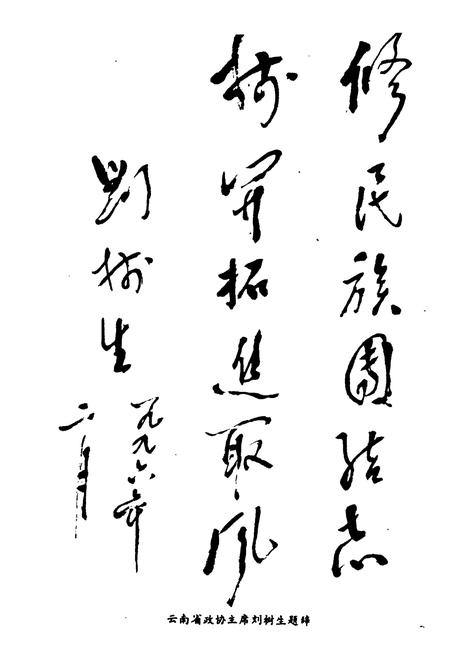 修民族團结志
树开拓進取风
劉树生
一九九六年
二月
云南省政协主席刘树生题辞